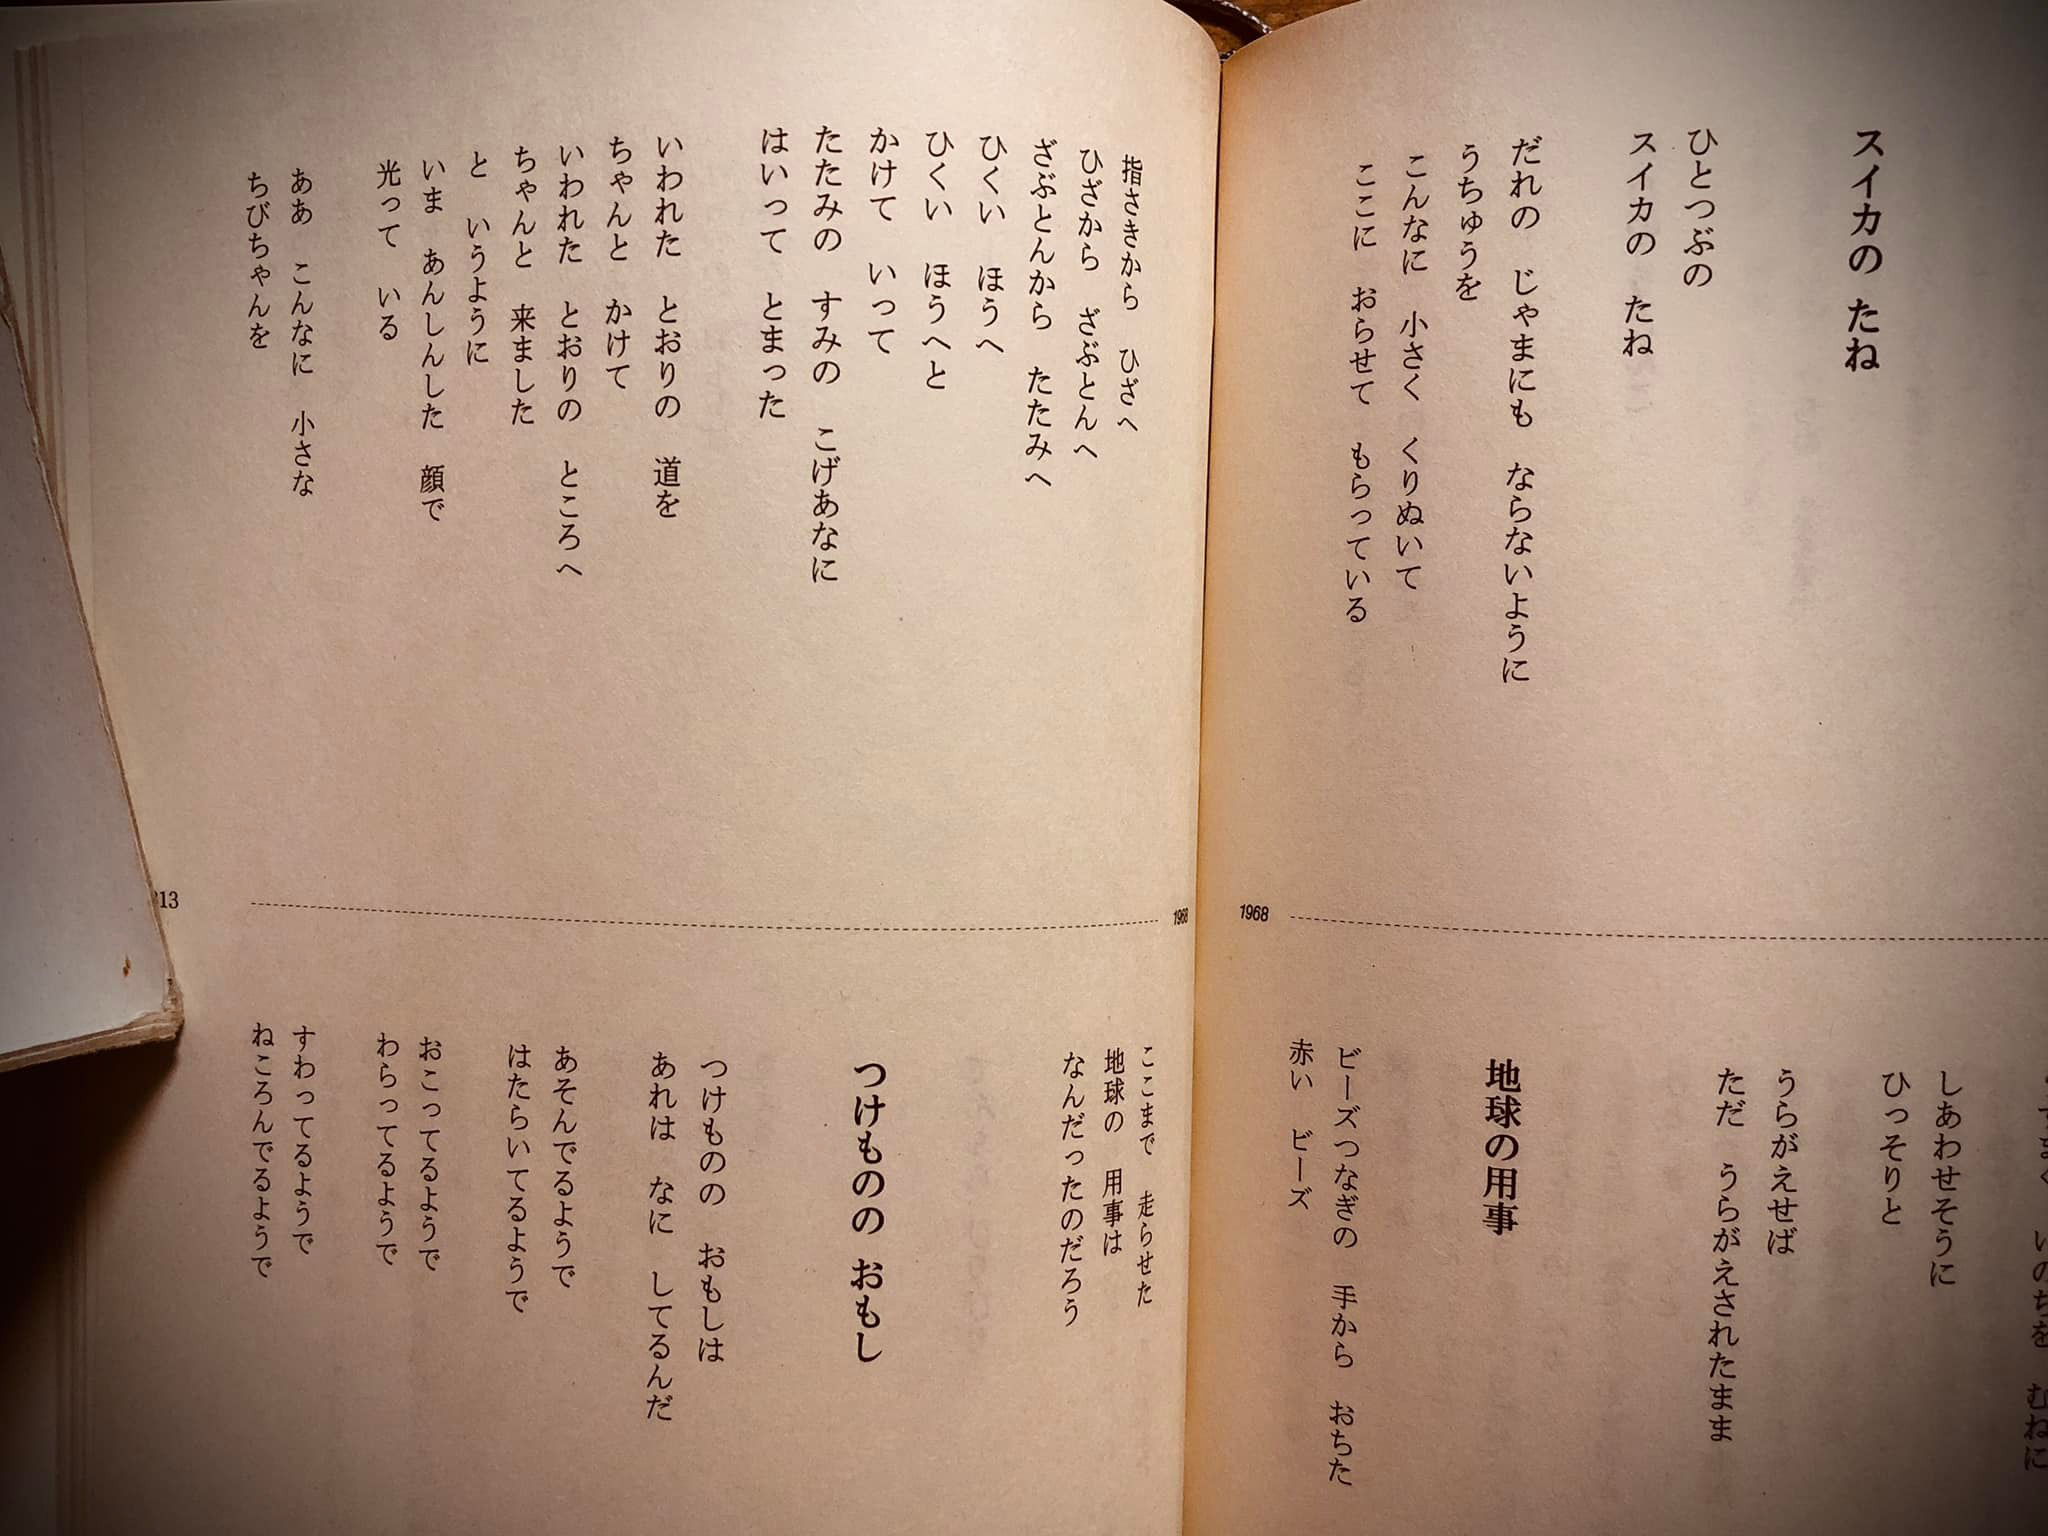 スイカの たね
ひとつぶの
スイカの たね
だれの じゃまにも ならないように
うちゅうを
こんなに 小さく くりぬいて
ここに おらせて もらっている
1968
いのちを むねに
しあわせそうに
ひっそりと
うらがえせば
ただ うらがえされたまま
地球の用事
ビーズつなぎの 手から おちた
赤い ビーズ
指さきから ひざへ
ひざから ざぶとんへ
ざぶとんから たたみへ
ひくい ほうへ
ひくい ほうへと
かけて いって
たたみの すみの こげあなに
はいって とまった
いわれた とおりの 道を
ちゃんと かけて
いわれた とおりの ところへ
ちゃんと 来ました
と いうように
いま あんしんした 顔で
光って いる
ああ こんなに 小さな
ちびちゃんを
1968
13
ここまで 走らせた
地球の 用事は
なんだったのだろう
つけものの おもし
つけものの おもしは
あれは なに してるんだ
あそんでるようで
はたらいてるようで
おこってるようで
わらってるようで
すわってるようで
ねころんでるようで